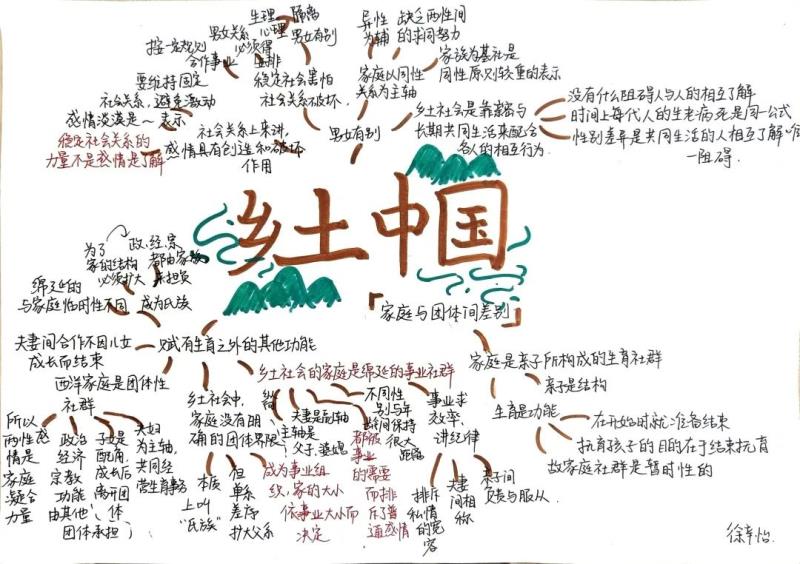 乡土中国
生理 隔离
男女关系 心理 男女有别
必须得
按一定规则
合作事业 安排
要维持固定
社会关系，避免激动
感情淡漠是～表示
稳定社会关系的
力量不是感情是了解
稳定社会害怕
社会关系破坏.
社会关系上来讲，
感情具有创造和破坏
作用
男女有别
异性 缺乏两性间
为辅 的求同努力
家族为基社是
同性原则较重的表示
家庭以同性
关系为主轴
乡土社会是靠亲密与
长期共同生活来配合
各人的相互行为.
没有什么阻碍人与人的相互了解
时间上每代人的生老病死是同一公式
性别差异是共同生活的人相互了解
一阻碍.
「家庭与团体间差别」
家庭是亲子所构成的生育社群
亲子是结构
生育是功能
在开始时就准备结束
抚育孩子的目的在于结束抚育
故家庭社群是暂时性的
赋有生育之外的其他功能
为了
家的结构
必须扩大
政.经.宗
都由家族
来担负
绵延的
与家庭临时性不同
成为氏族
夫妻间合作不因儿女
成长而结束
西洋家庭是团体性
社群
所以
两性感
情是
家庭
凝合
力量
政治
经济
宗教
功能
由其他
团体承担
子女是
配角，
成长后
离开团
体
夫妇
为主轴，
共同经
营生育事务
乡土社会的家庭是绵延的事业社群
乡土社会中，
家庭没有明
确的团体界限
本质
上叫
"氏族"
但
单系
差序
扩大父系
夫妻是配轴
主轴是
父子、婆媳
成为事业组
织，家的大小
依事业大小而
决定
不同性
别与年
龄间保持
很大
距离
都被
事业
的需要
而排
斥了普
通感情
事业求
效率，
讲纪律
排斥
私情
的宽
容
夫妻
间相
称
亲子间
负责与服从.
徐幸怡.